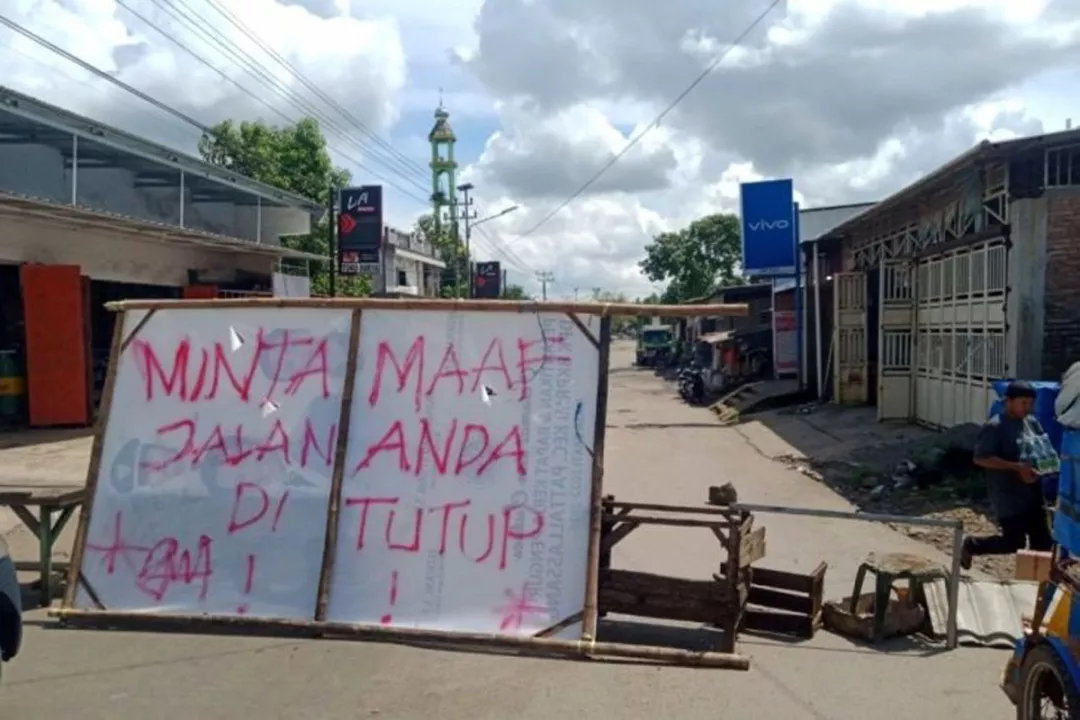 LA
vivo
MINTA MAAF
JALAN ANDA
DI TUTUP
! !